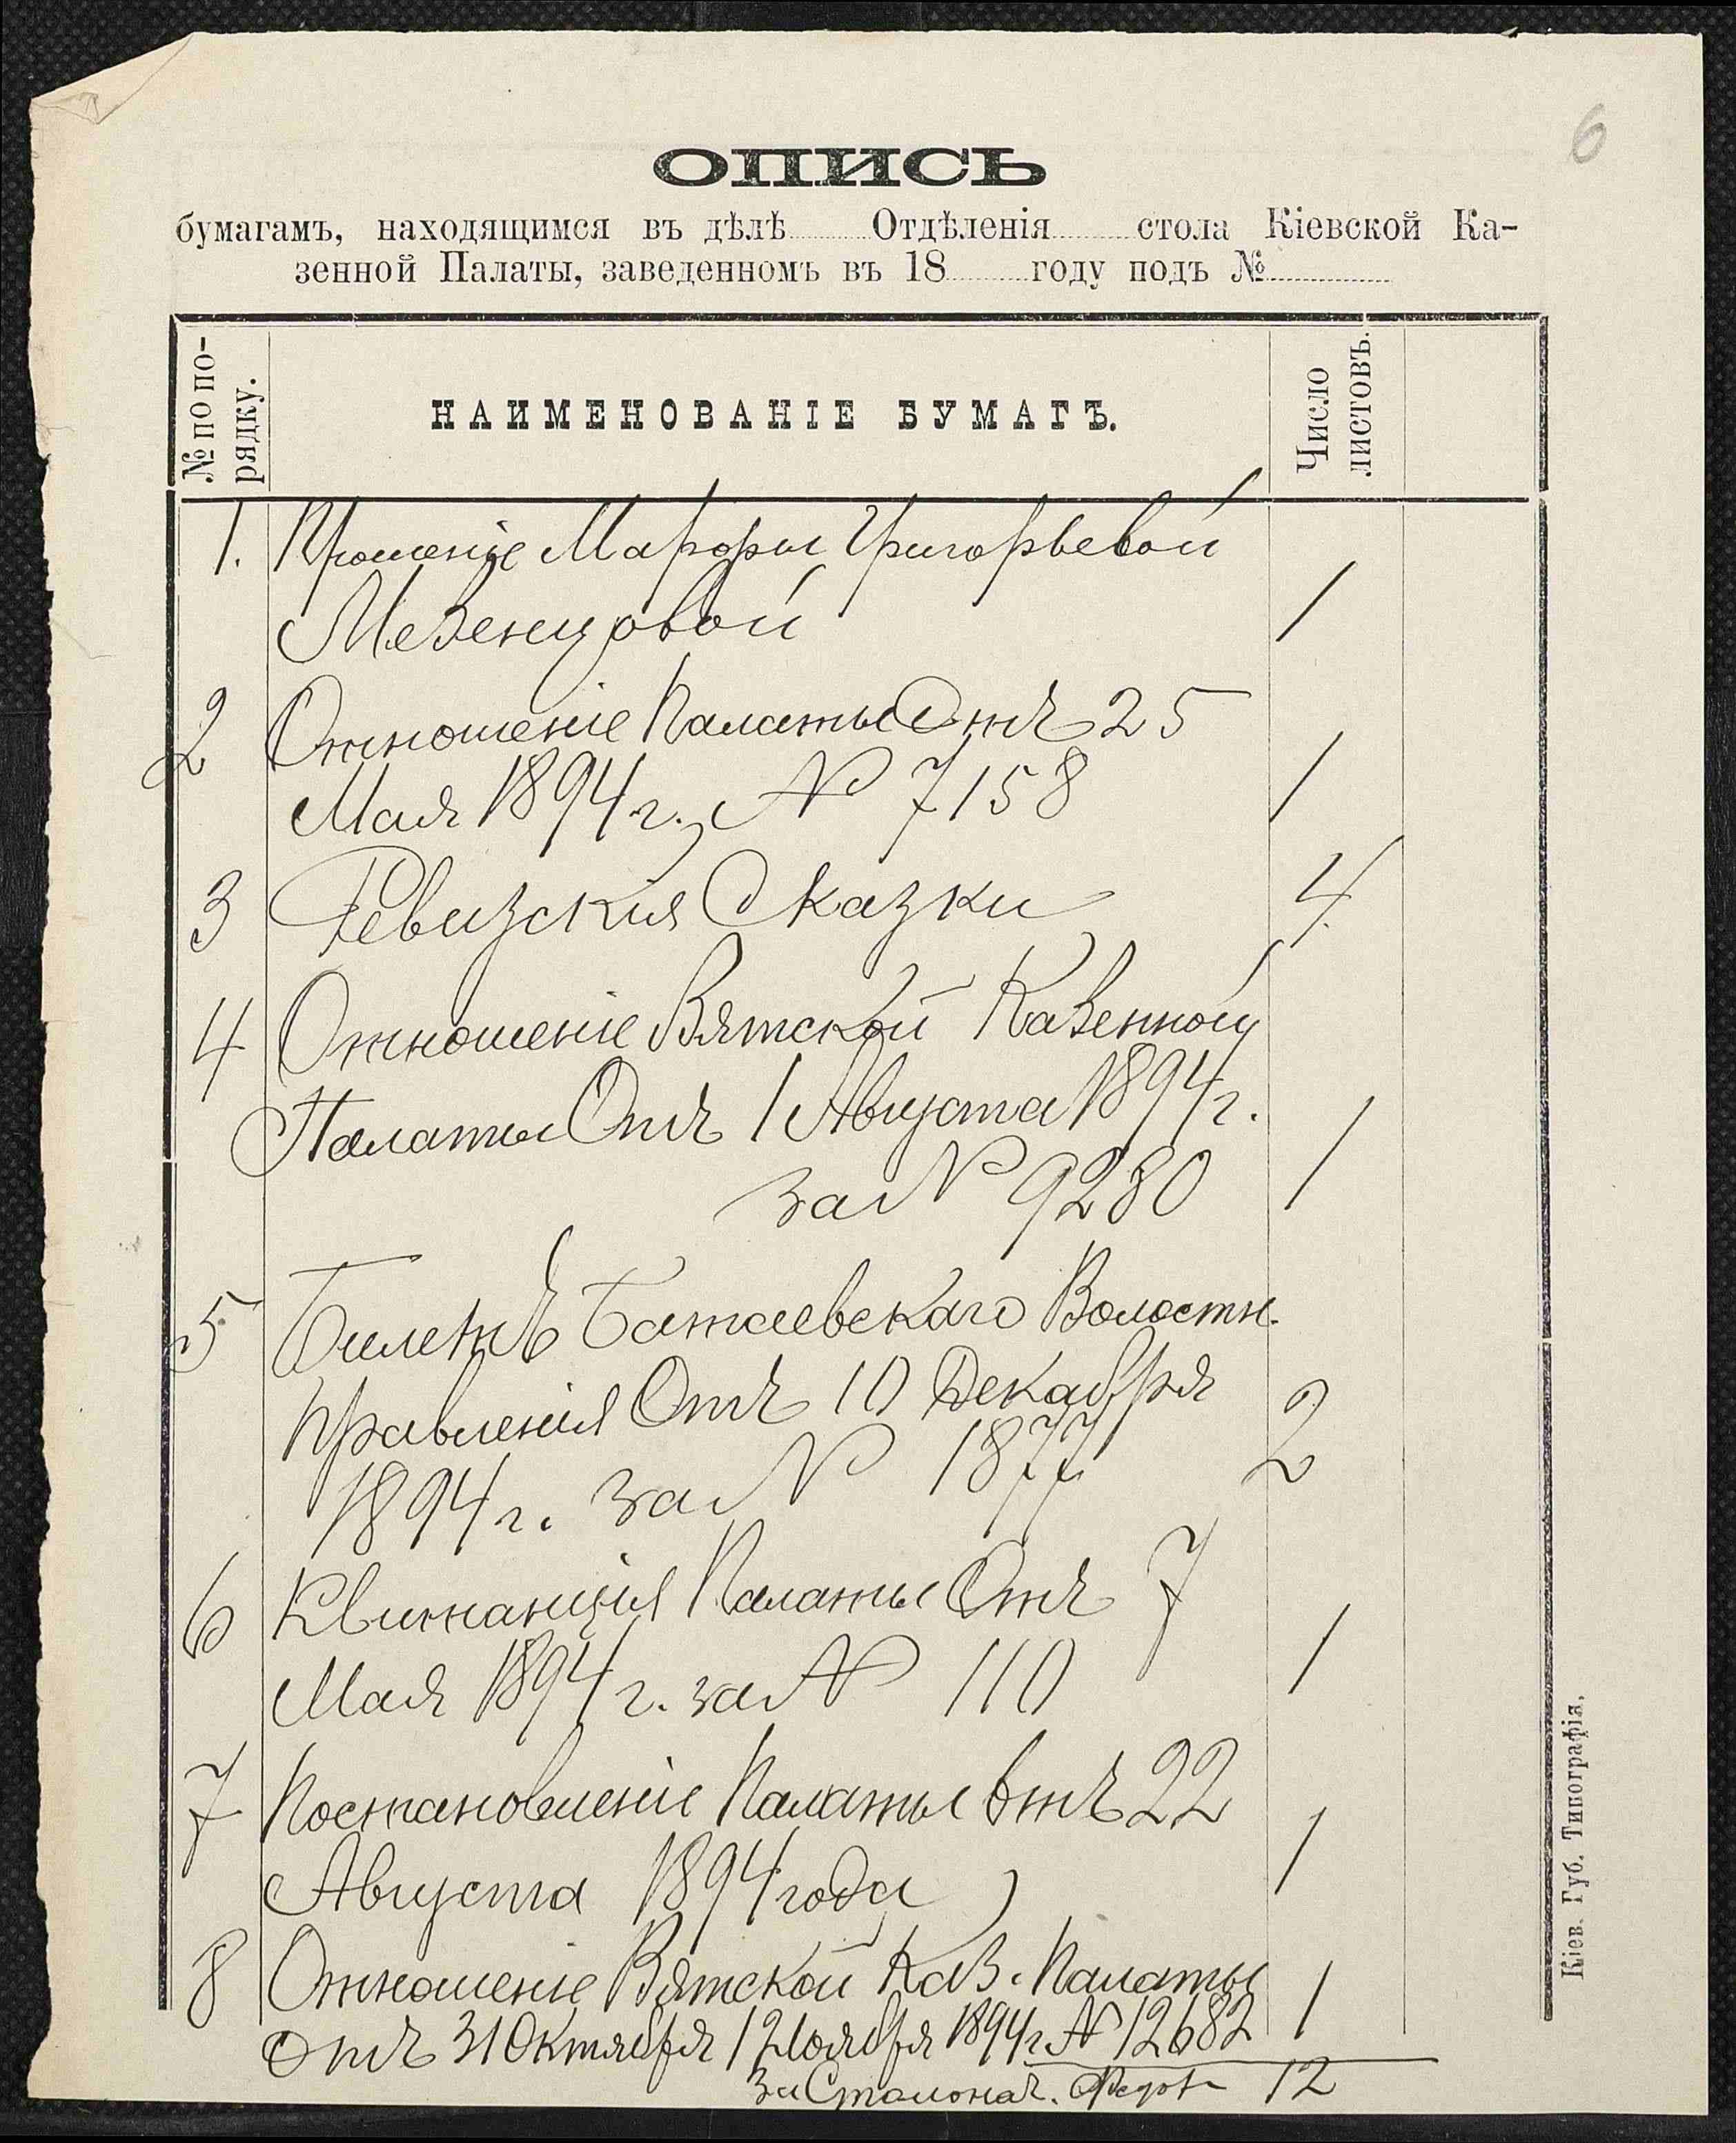 6
ОПИСЬ
бумагамъ, находящимся въ дѣлѣ Отдѣленія стола Кіевской Ка-
зенной Палаты, заведенномъ въ 18 году подъ №
№ по по-
рядку.
НАИМЕНОВАНІЕ БУМАГЪ.
Число
листовъ.
1. Прошеніе Марфы Григорьевой
Мезенцовой 1
2 Отношеніе Палаты Отъ 25
Мая 1894 г. № 7158 1
3 Ревизскія Сказки 4
4 Отношеніе Вятской Казенной
Палаты Отъ 1 Августа 1894 г.
за № 9280 1
5 Билетъ Батаевскаго Волостн.
Правленія Отъ 10 Декабря 2
1894 г. за № 1877
6 Квитанція Палаты Отъ 7
Мая 1894 г. за № 110 1
7 Постановленіе Палаты Отъ 22
Августа 1894 года 1
8 Отношеніе Вятской Каз. Палаты 1
отъ 31 Октября / 2 Ноября 1894 г. № 12682
За Столонач. 12
Кіев. Губ. Типографія.